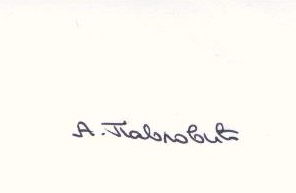 А. Павловић